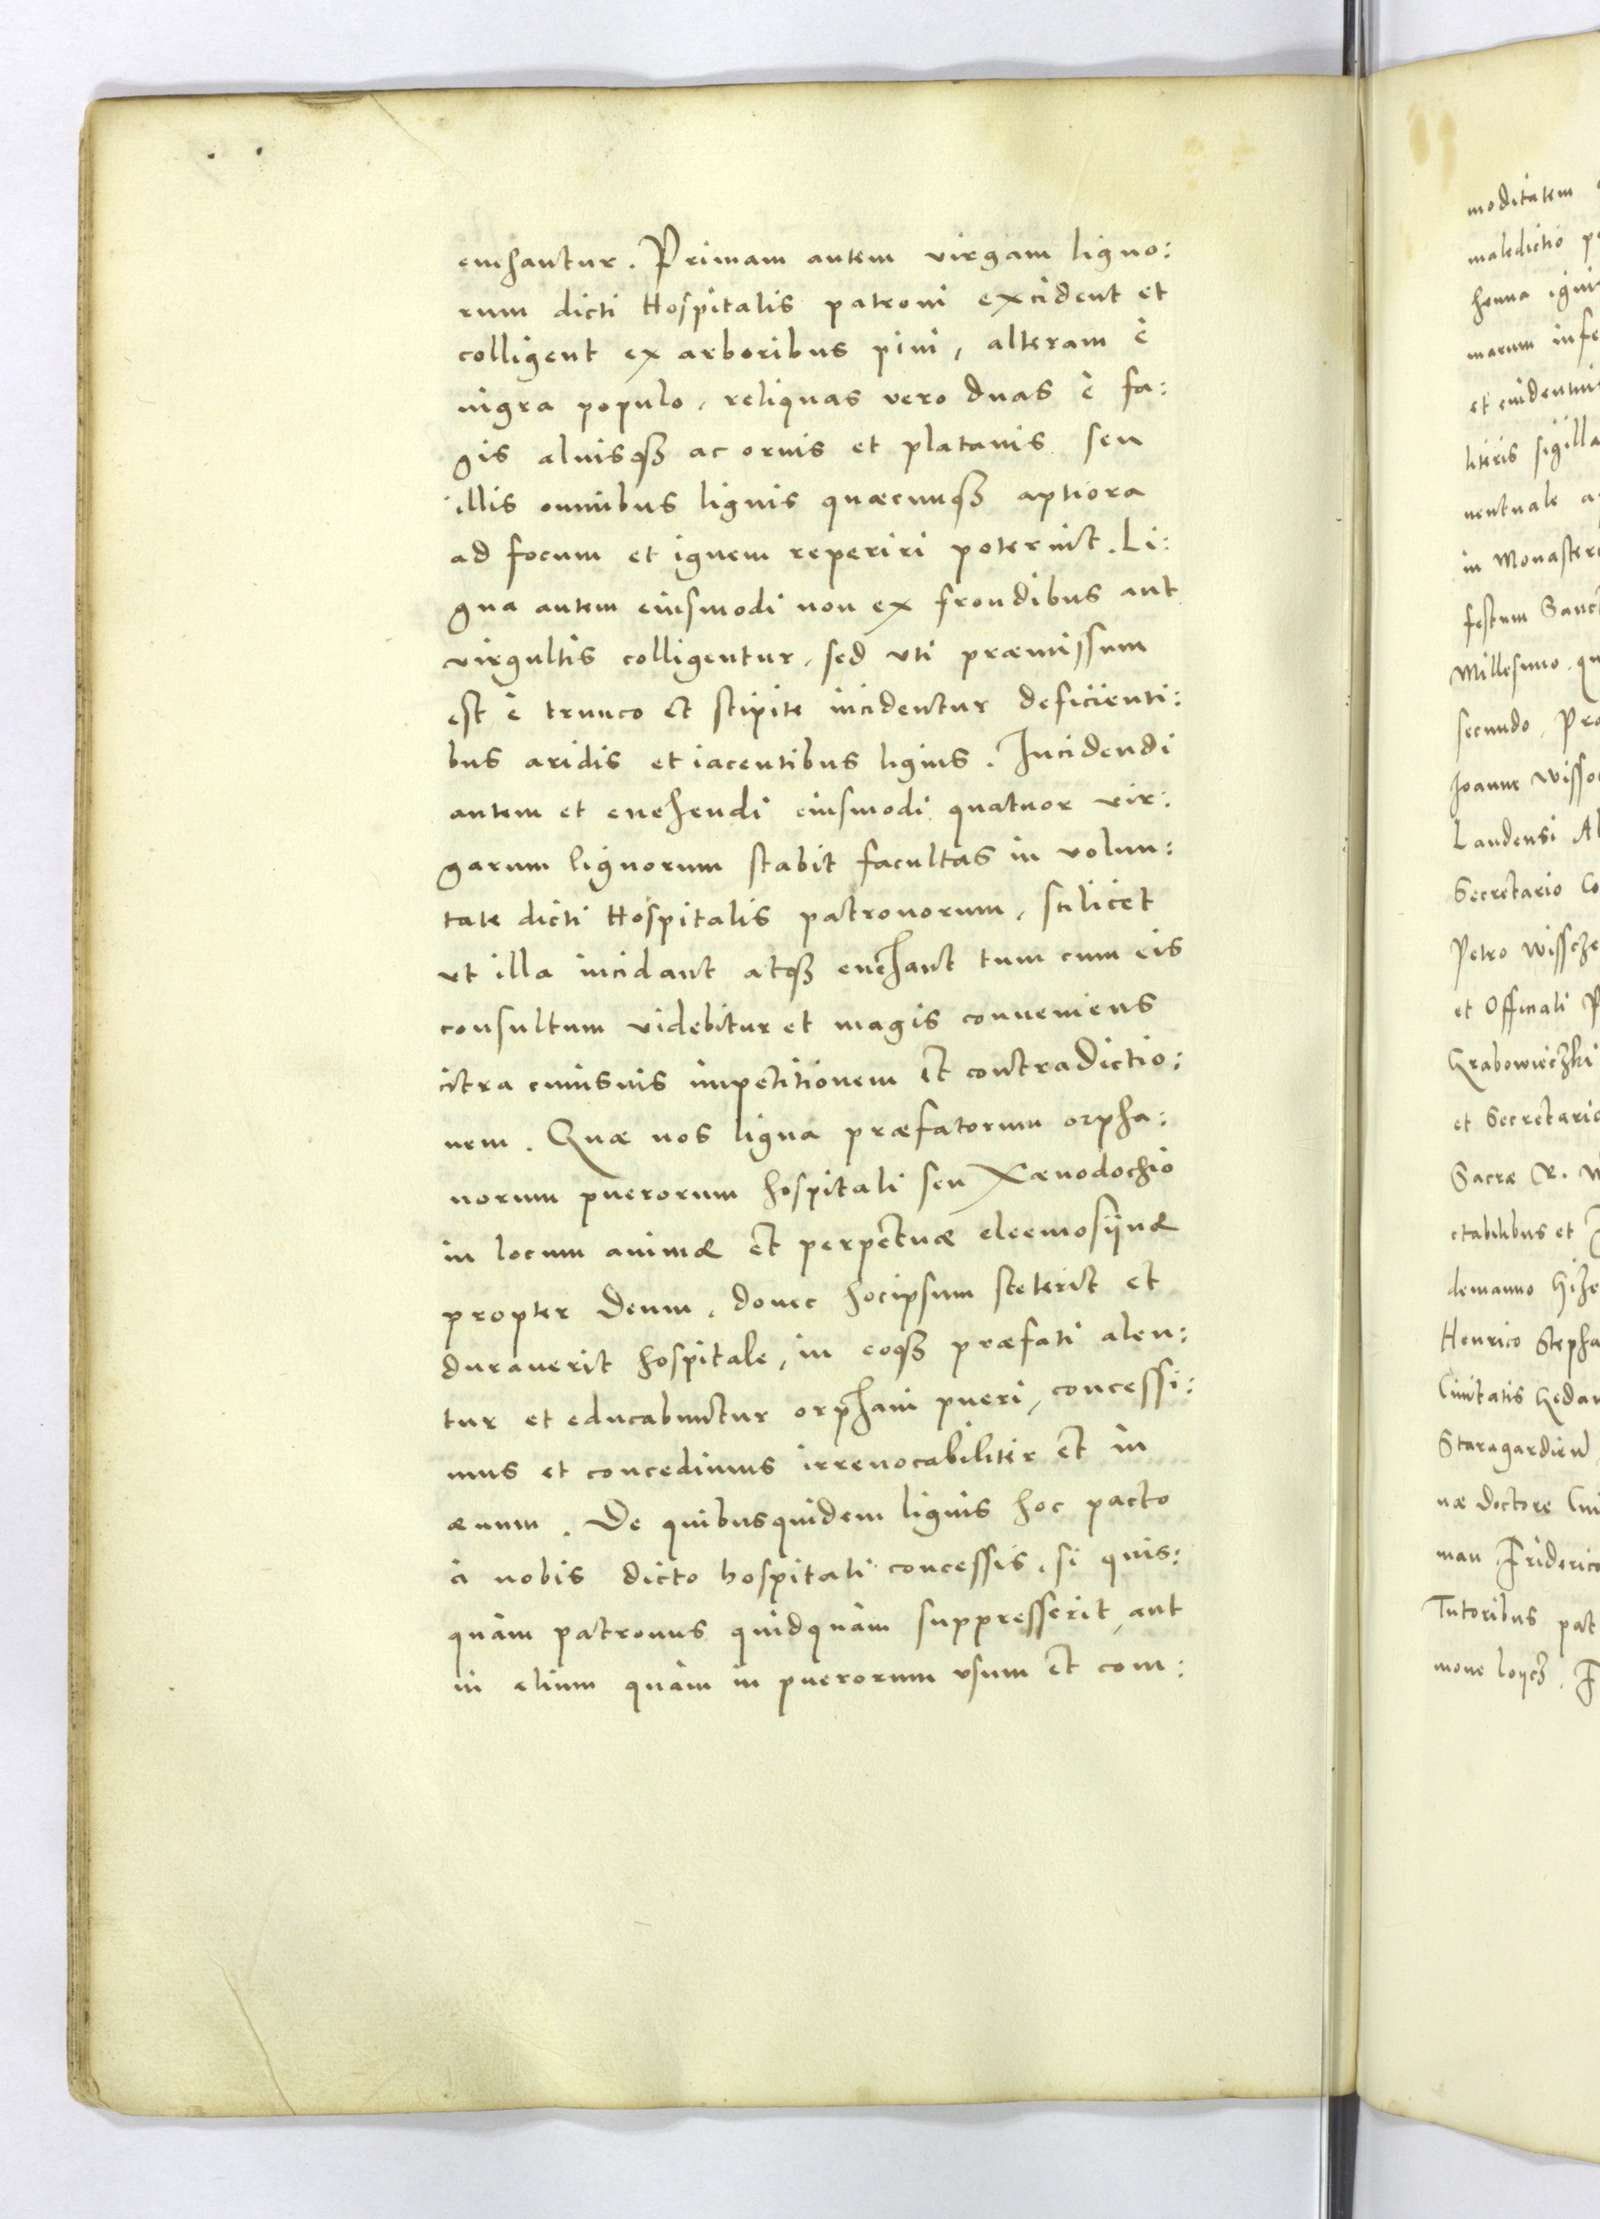 euehantur. Primam autem virgam ligno:
rum dicti Hospitalis patroni excident et
colligent ex arboribus pini, alteram è
nigra populo, reliquas vero duas è fa:
gis alnisqȝ ac ornis et platanis seu
illis omnibus lignis quæcunqȝ aptiora
ad focum et ignem reperiri poterint. Li:
gna autem eiusmodi non ex frondibus aut
virgultis colligentur, sed vti præmissum
est è trunco et stipite incidentur deficienti:
bus aridis et iacentibus lignis. Incidendi
autem et euehendi eiusmodi quatuor vir:
garum lignorum stabit facultas in volun:
tate dicti Hospitalis patronorum, scilicet
vt illa incidant atqȝ euehant tum cum eis
consultum videbitur et magis conueniens
citra cuiusuis impetitionem et contradictio:
nem. Quæ nos ligna præfatorum orpha:
norum puerorum hospitali seu Xænodochio
in locum animæ et perpetuæ eleemosijnæ
propter Deum, donec hocipsum steterit et
durauerit hospitale, in eoqȝ præfati alen:
tur et educabuntur orphani pueri, concessi:
mus et concedimus irreuocabiliter et in
æuum. De quibusquidem lignis hoc pacto
à nobis dicto hospitali concessis, si quis:
quàm patronus quidquàm suppresserit, aut
in alium quàm in puerorum vsum et com:
moditatem
maledictio
henna igni
marum infe
et euidentius
literis sigilla
uentuale
in Monasteri
festum Sanct
Millesimo qu
secundo, Pra
Joanne Wisso
Landensi Ab
Secretario Co
Petro Wissze
et Officiali P
Grabowieczki
et Secretario
Sacræ R. M
ctabilibus et
demanno Gize
Henrico Stepha
Ciuitatis Gedan
Staragardien
næ Doctore Ciui
man, Friderico
Tutoribus pat
mone Loycz, F